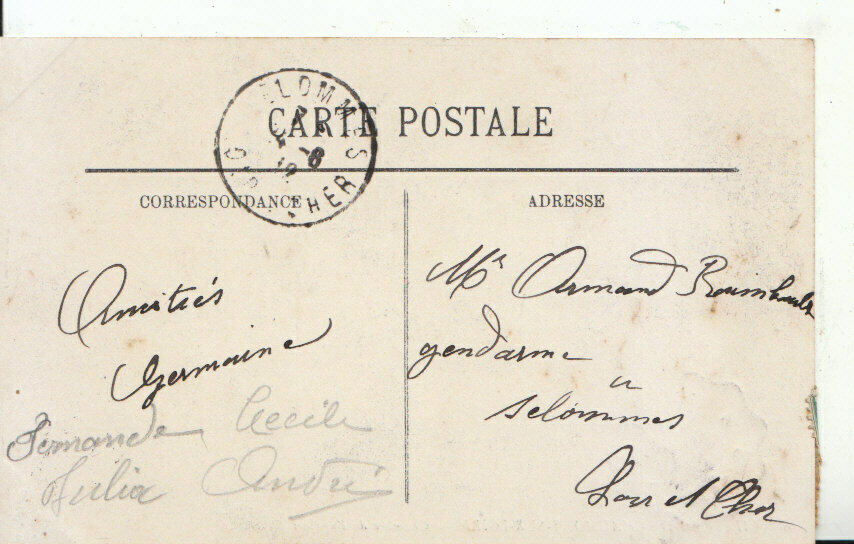 CARTE POSTALE
SELOMMES
CHER
CORRESPONDANCE
Amitiés
Germaine
Fernande Cecile
Julia André
ADRESSE
Mr Armand
gendarme
à
selommes
Loir et Cher